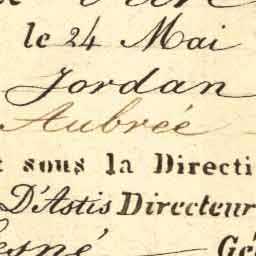 le 24 Mai
Jordan
Aubrée
sous la Directi
D'Astis Directeur
esné — Gé